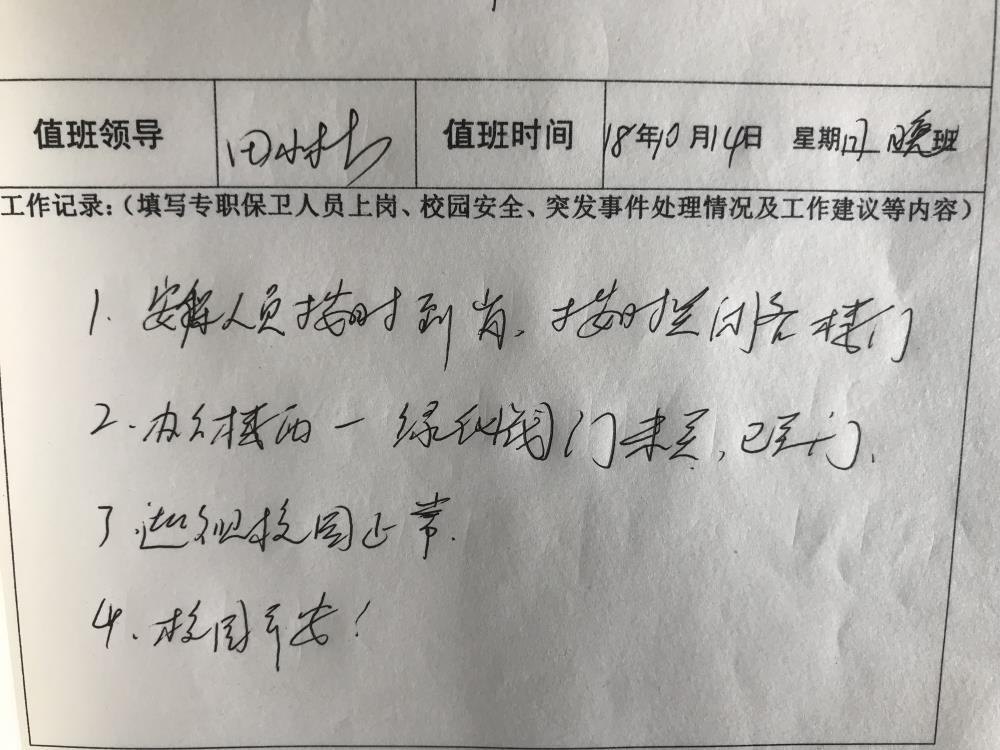 值班领导 田 值班时间 18年10月14日 星期日 晚班
工作记录:(填写专职保卫人员上岗、校园安全、突发事件处理情况及工作建议等内容)
1. 安保人员按时到岗,按时关闭各楼门
2. 办公楼西一绿化带门未关,已关门.
3 巡视校园正常.
4. 校园平安!